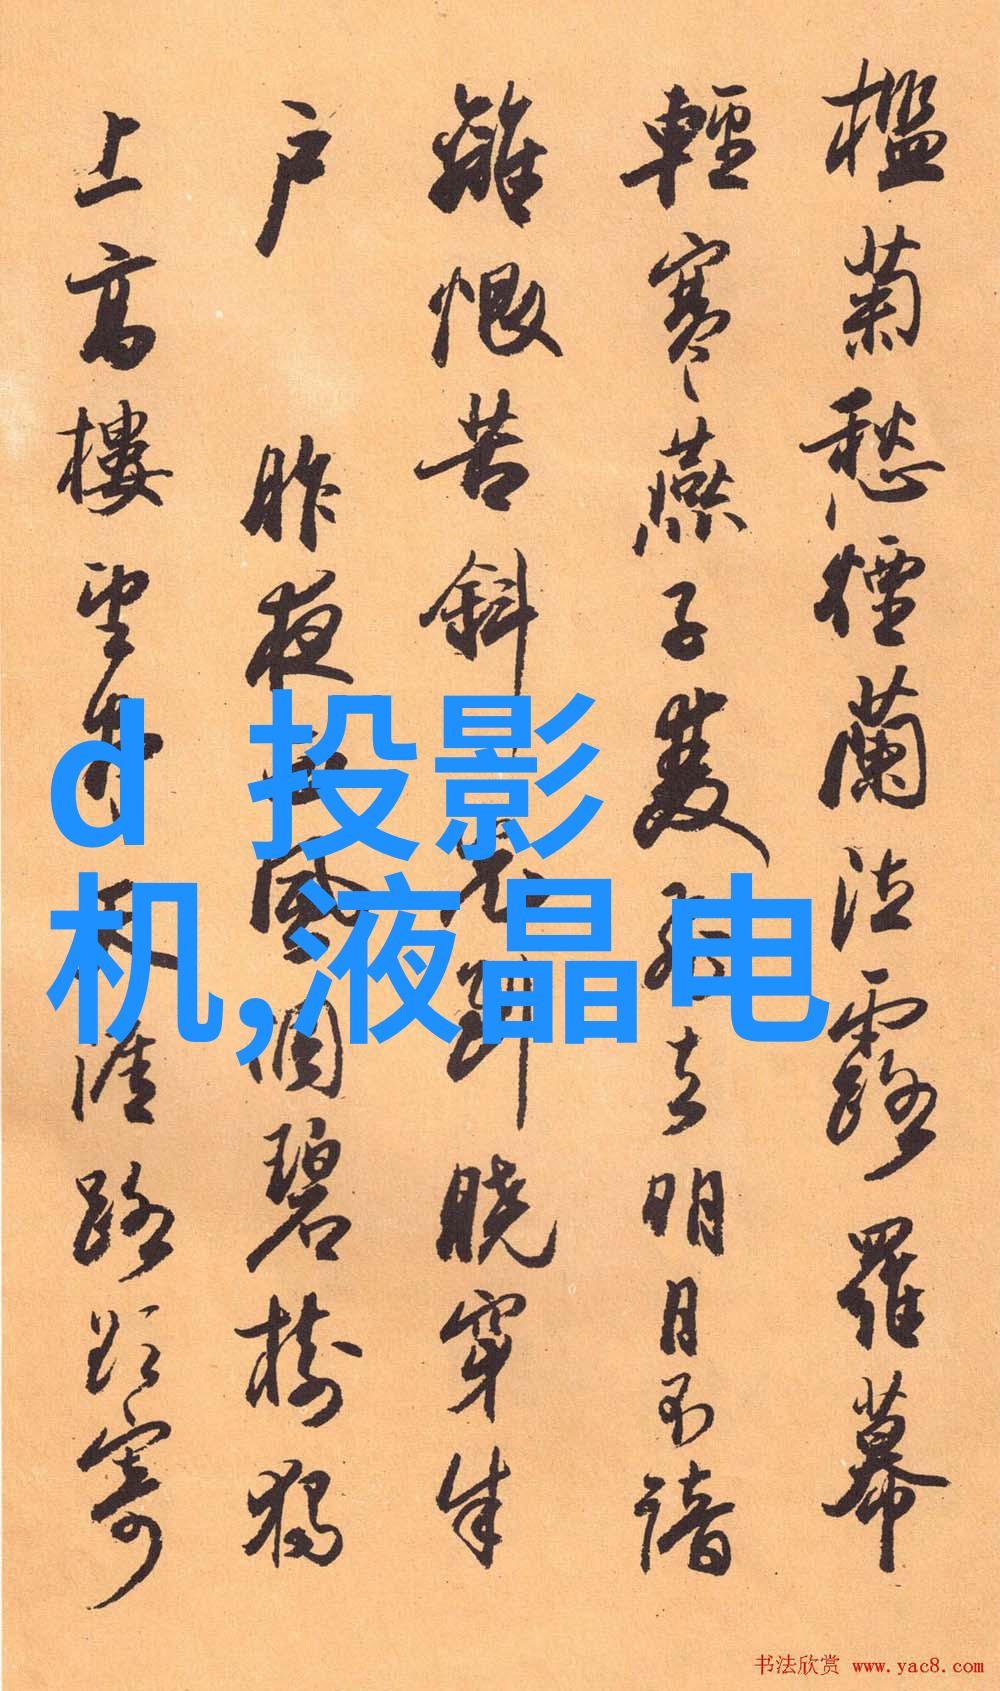 檻菊愁煙蘭泣露羅幕
輕寒燕子雙飛去明月不諳
離恨苦斜光到曉穿朱
戶 昨夜西風凋碧樹獨
上高樓望盡天涯路欲寄
d 投影
机,液晶电
书法欣赏 www.yac8.com